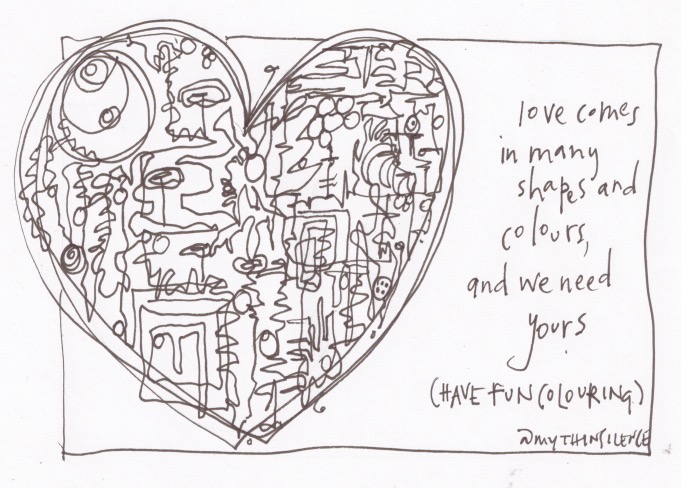 love comes
in many
shapes and
colours,
and we need
yours
(HAVE FUN COLOURING)
@myTHINSILENCE